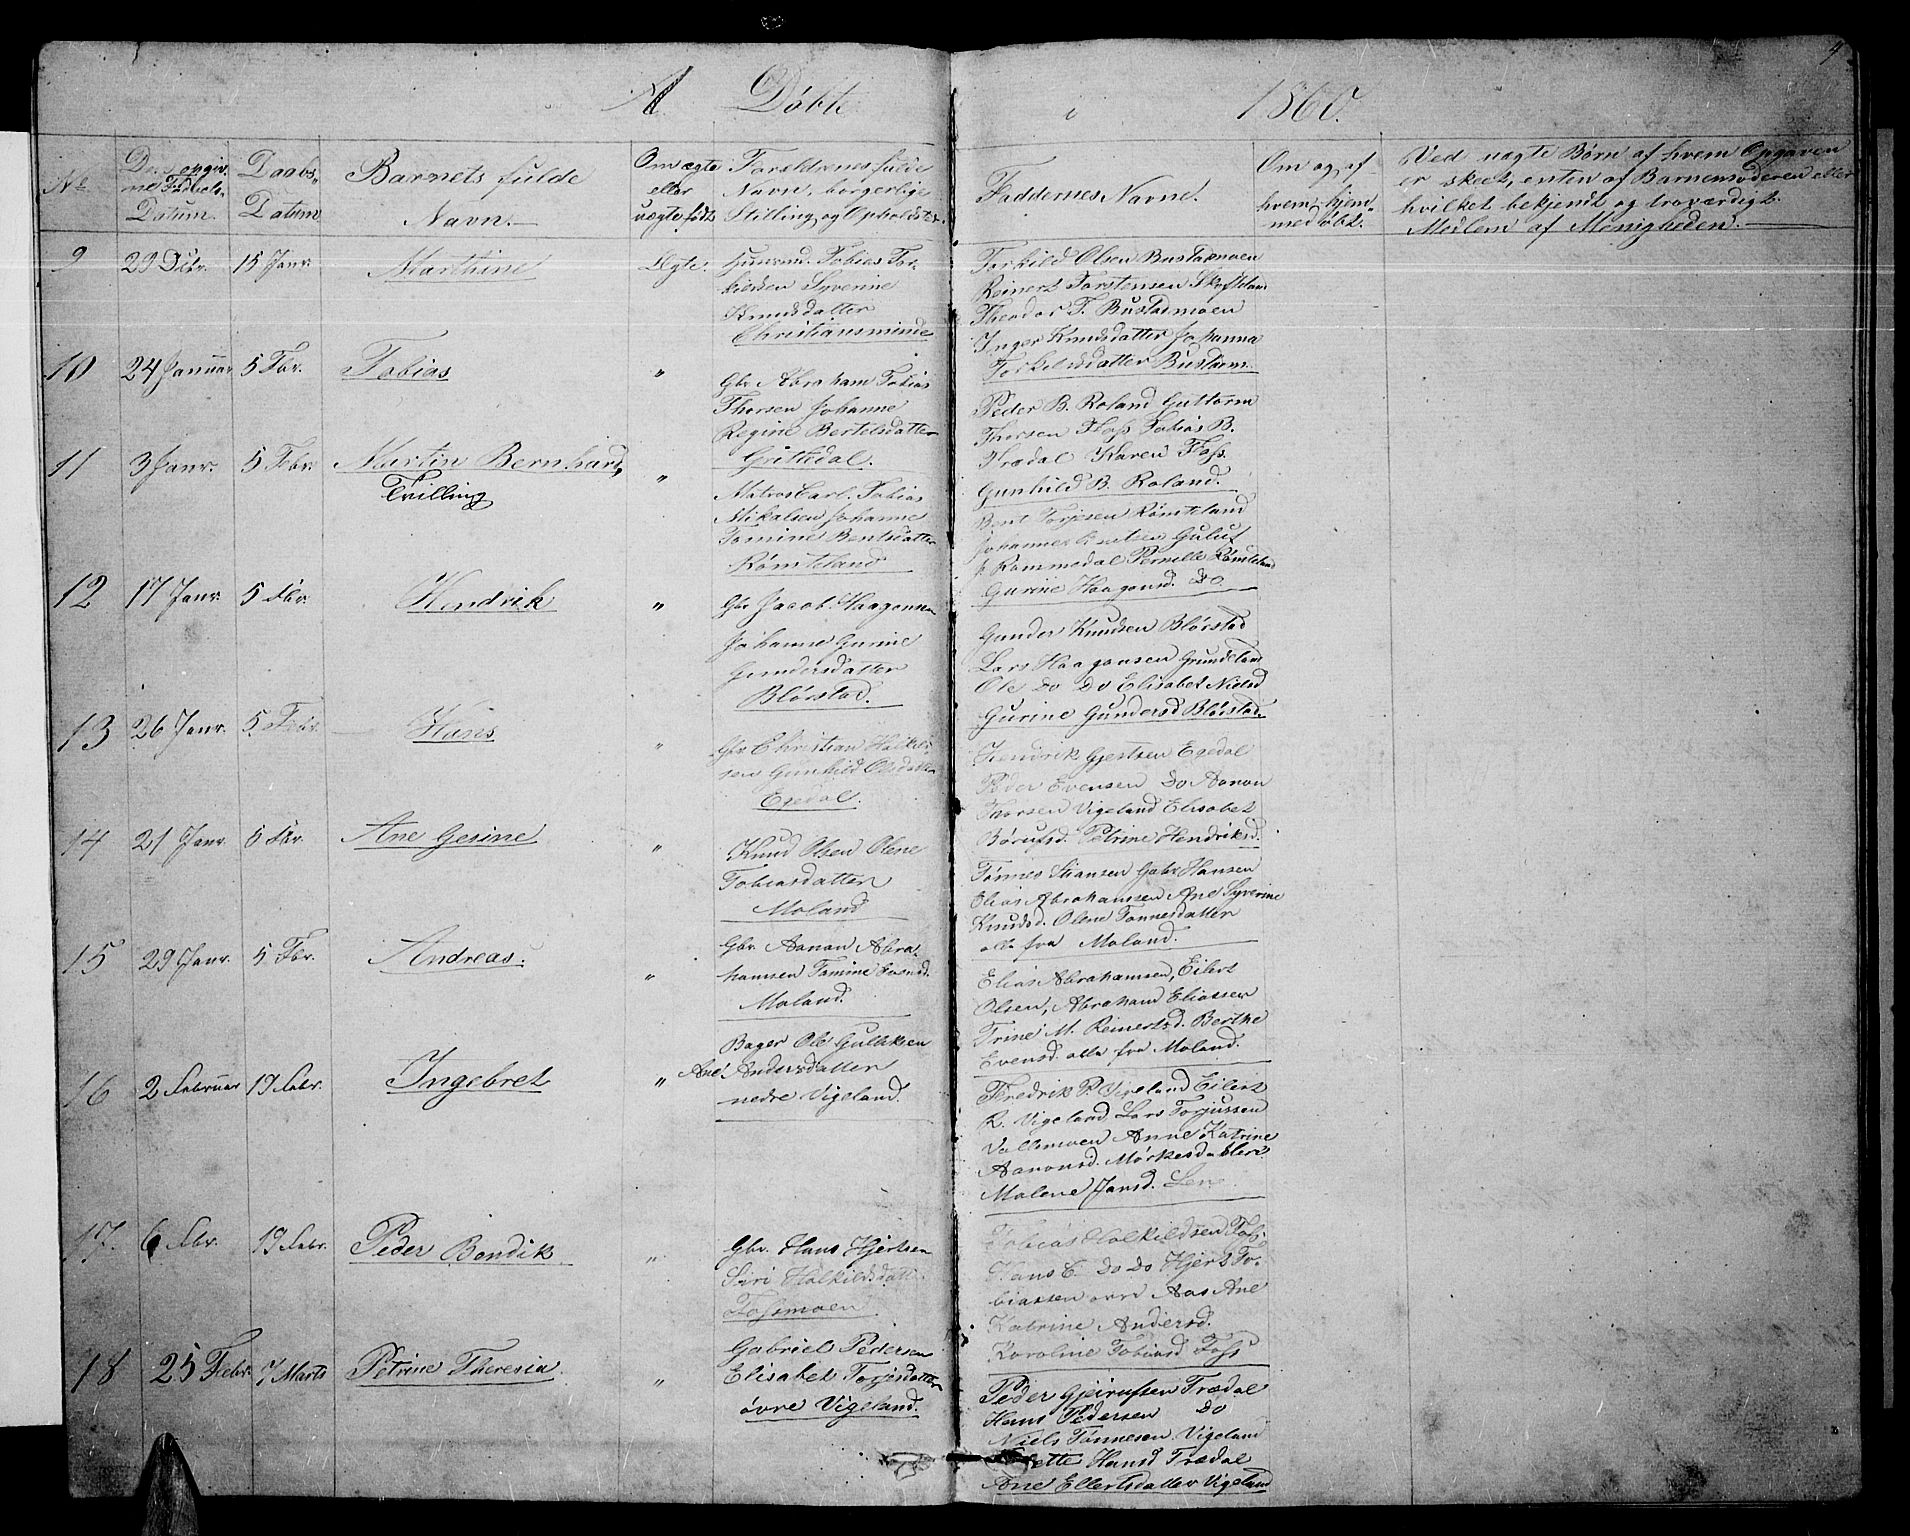 A. Døbte i 1860.
4
No
Den opgivne Fødsels Datum.
Daabs Datum
Barnets fulde Navn.
Om ægte eller uægte født
Forældrenes fulde Navn, borgerlige Stilling og Opholdsted
Faddernes Navne.
Om og af hvem hjemmedøbt.
Ved uægte Børn af hvem Opgaven
er skeet, enten af Barnemoderen eller
hvilket bekjendt og troværdigt
Medlem af Menigheden.
9 29 Dcbr. 15 Janr. Marthine Ægte.
Tobias Tor-
kielsen Syverine
Knudsdatter
Christiansminde
Torkild Olsen Bustadmoen
Reinert Torstensen
Theodor T. Bustadmoen
Inger Knudsdatter Johanna
Torkildsdatter Bustadm.
10 24 Januar 5 Fbr. Tobias "
Gbr. Abraham Tobias
Thorsen Johanne
Regine Bertelsdatter
Grittedal.
Peder B. Roland Guttorm
Thorsen Foss Tobias B.
Trædal Karen Foss.
Gunhild B. Roland.
11 3 Janr. 5 Fbr. Martin Bernhard, "
Tvilling
Matros Carl Tobias
Mikalsen Johanne
Tomine Bentsdatter
Rømteland
Bent Torjesen Rømteland
Johannes Guluf
J. Rommedal Pernille Rømteland
Gurine Haagensd. Do.
12 17 Janr. 5 Fbr. Hendrik "
Gbr Jacob Haagensen
Johanne Gurine
Gundersdatter
Blørstad.
Gunder Knudsen Blørstad
Lars Haagensen Grundeland
Ole Do Do Elisabet Nielsd
Gurine Gundersd Blørstad.
13 26 Janr. 5 Febr. Hans "
Gbr Christian Halkil-
sen Gunhild Olsdatter
Egedal.
Hendrik Gjertsen Egedal
Peder Evensen Do Aanon
Thorsen Vigeland Elisabet
Børufsd. Petrine Hendriksd.
14 21 Janr. 5 Fbr. Ane Gesine "
Knud Olsen Olene
Tobiasdatter
Moland
Tønnes Stiansen Gabr Hansen
Elias Abrahamsen Ane Syverine
Knudsd. Olene Tønnesdatter
alle fra Moland.
15 29 Janr. 5 Fbr. Andreas. "
Gbr. Aanon Abra-
hamsen Tomine
Moland.
Elias Abrahamsen, Eilert
Olsen, Abraham Eliassen
Trine M. Reinertsd. Berthe
Evensd. alle fra Moland.
16 2 Februar 19 Febr. Ingebret "
Bager Ole Gulliksen
Ane Andersdatter
nedre Vigeland.
Fredrik P. Vigeland Eilert
R. Vigeland Lars Torjussen
Vallemoen Anne Katrine
Aanonsd.
Malene Jansd. Lene
17. 6 Fbr. 19 Febr. Peder Bendik. "
Gbr. Hans Hjertsen
Siri Halkildsdatt.
Fossmoen
Tobias Halkildsen Foss
Hans C. Do Do Hjert To-
biassen øvre Aas Ane
Katrine Andersd.
Karoline Tobiasd Foss
18 25 Febr. 7 Marts Petrine Theresia. "
Gabriel Pedersen
Elisabet Torjesdatter
øvre Vigeland.
Peder Gjerufsen Trædal
Hans Pedersen Do
Niels Tønnesen Vigeland
Hansd Trædal
Ane Ellertsdatter Vigeland